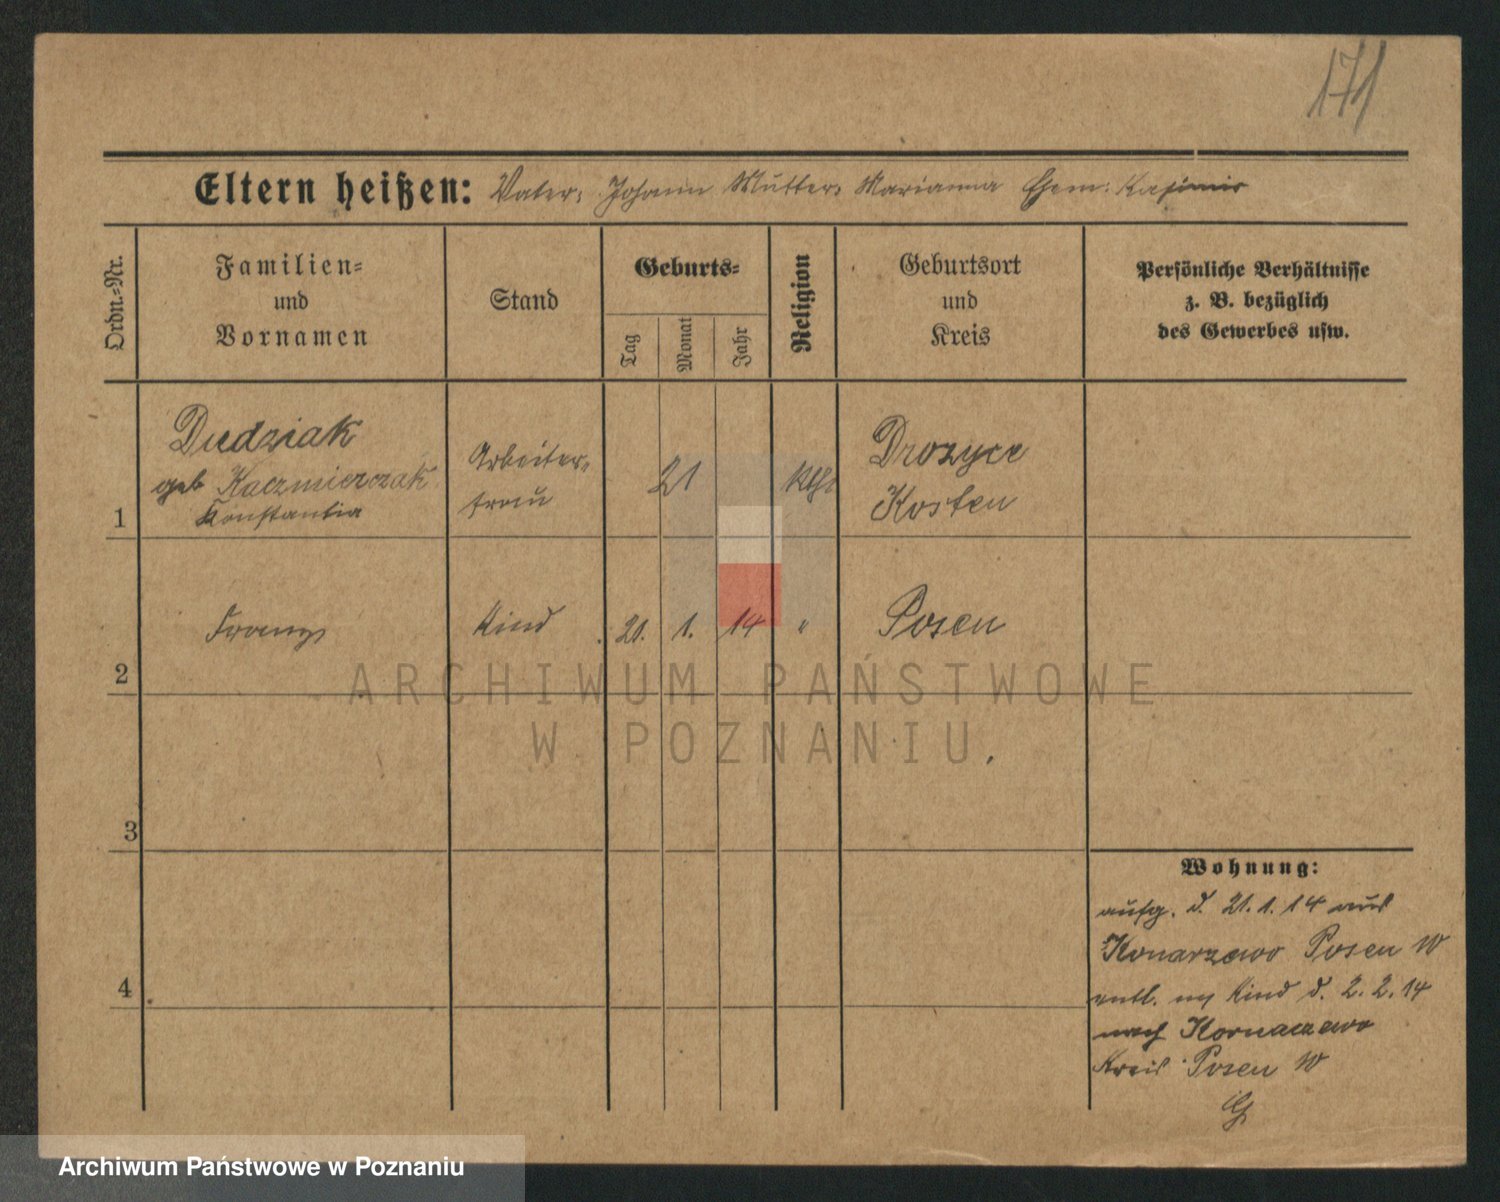 171
Eltern heißen: Vater: Johann Mutter: Marianna Ehem: Kasimir
Ordn.-Nr.
Familien-
und
Vornamen
Stand
Geburts-
Tag
Monat
Jahr
Religion
Geburtsort
und
Kreis
Persönliche Verhältnisse
z. B. bezüglich
des Gewerbes usw.
1
Dudziak
geb Kaczmierczak
Konstantia
Arbeiter-
frau
21
kth
Drozyce
Kosten
2
Franz
Kind
21. 1. 14
"
Posen
3
4
Wohnung:
aufg. d. 21. 1. 14 aus
Konarzewo Posen W
entl. m Kind d. 2. 2. 14
nach Kornaczewo
Kreis Posen W
G
ARCHIWUM PAŃSTWOWE
W POZNANIU
Archiwum Państwowe w Poznaniu